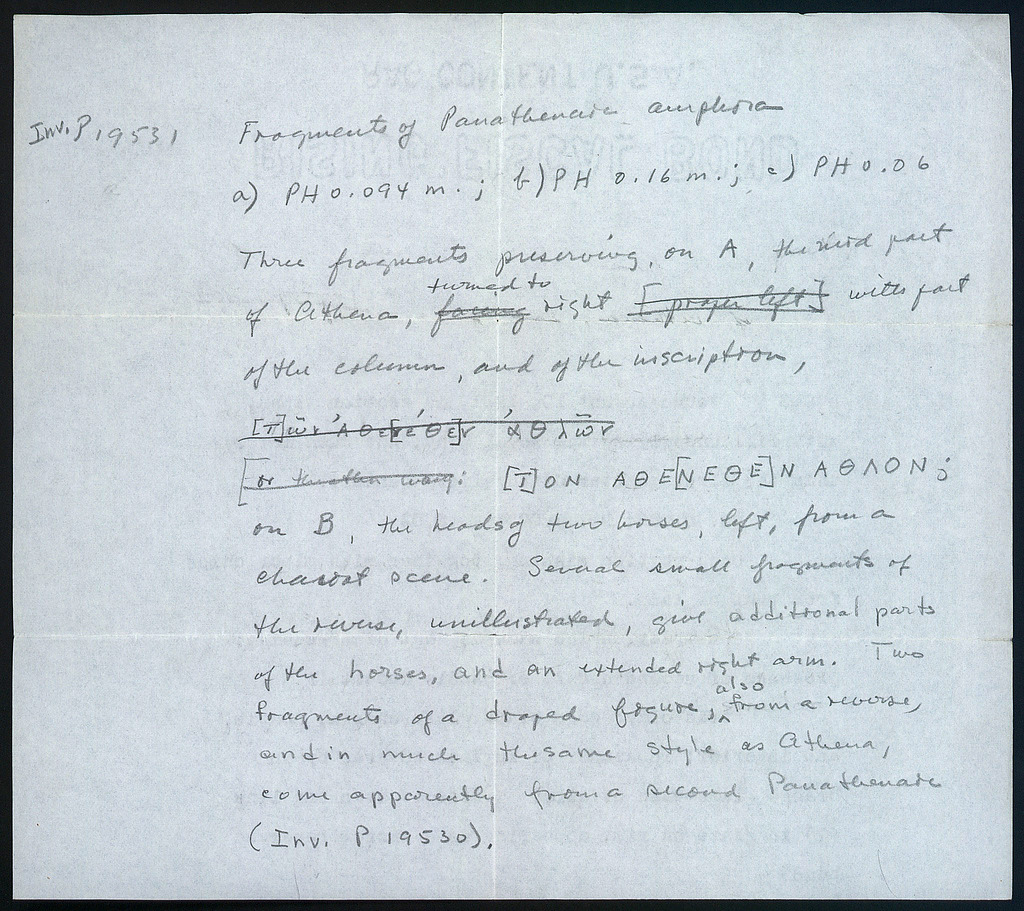 Inv. P 19531 Fragments of Panathenaic amphora
a) PH 0.094 m.; b) PH 0.16 m.; c) PH 0.06
Three fragments preserving, on A, the mid part
turned to
of Athena, facing right [proper left] with part
of the column, and of the inscription,
[τ]ῶν Ἀθε[νέθε]ν ἄθλῶν
[or the other way: [T]ON AΘE[NEΘE]N AΘΛON;
on B, the heads of two horses, left, from a
chariot scene. Several small fragments of
the reverse, unillustrated, give additional parts
of the horses, and an extended right arm. Two
also
fragments of a draped figure, ^ from a reverse,
and in much the same style as Athena,
come apparently from a second Panathenaic
(Inv. P 19530).